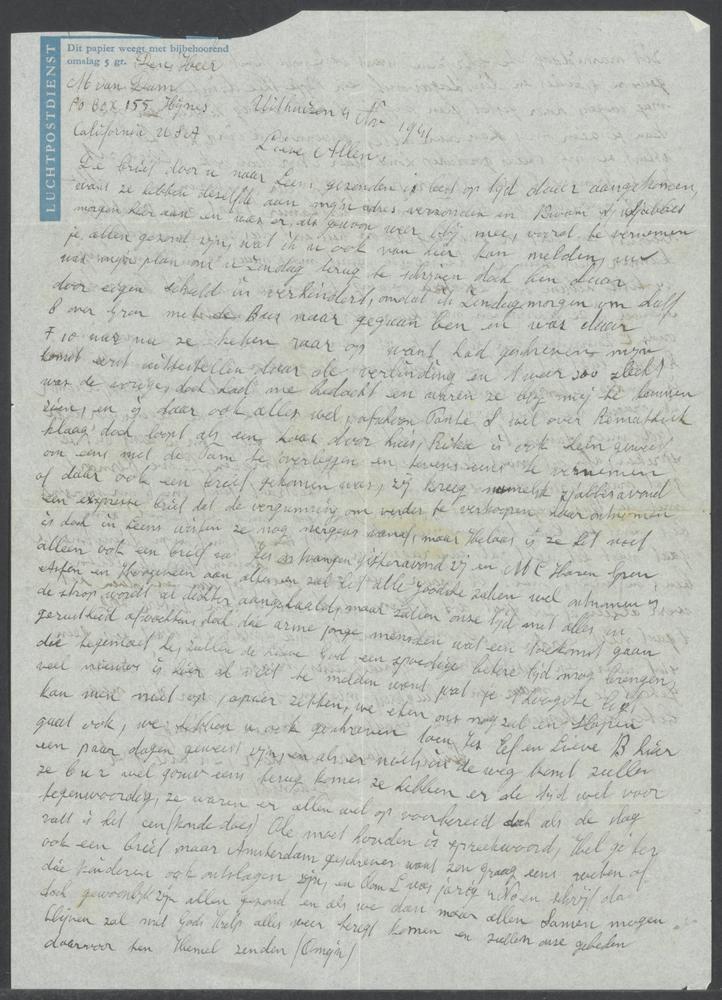 LUCHTPOSTDIENST
Dit papier weegt met bijbehoorend
omslag 5 gr. Den Heer
M van Dam
Po Box 155 Hynes
California U S A
Uithuizen 4 Nov 1941
Lieve Allen
De brief door u naar Leens gezonden is best op tijd daar aangekomen,
want ze hebben dezelfde aan mijn adres verzonden en
morgen hier aan en was er als gewoon weer blij mee, vooral te vernemen
je allen gezond zijn, wat ik u ook van hier kan melden,
was mijn plan om u Zondag terug te schrijven doch ben daar
door eigen schuld in verhinderd, omdat ik Zondagmorgen om half
8 over Gron met de Bus naar gegaan ben en was daar
7 10 uur nu ze keken raar op want had geschreven mijn
komst eerst uittestellen daar de verbinding en 't weer zoo slecht
was de vorige, doch had me bedacht en waren ze blij mij te kunnen
zien, en is daar ook alles wel, Tante S wel over Rematiek
klaagt doch loopt als een haas door huis, Rika is ook
om eens met de Dam te overleggen en tevens eens te vernemen
of daar ook een brief gekomen was, zij kreeg namelijk avond
een expresse brief dat de vergunning om verder te verkoopen haar ontnomen
is doch in Leens wisten ze nog nergens vanaf, maar Helaas is ze het niet
alleen ook een brief ontvangen gisteravond zij en Haren Gron
Assen en Hoogeveen aan allen en zal het alle Joodsche zaken wel ontnomen
de strop wordt al dichter aangehaald, maar zullen onze tijd met alles in
gerustheid afwachten, doch die arme jonge menschen wat een toekomst gaan
die tegemoet he, zullen de Lieve God een spoedige betere tijd mag brengen,
veel nieuws is hier al niet te melden want wat je 't hoogste ligt
kan men niet op papier zetten, we eten ons nog zat en slapen
goed ook, we hebben u ook geschreven toen Eef en Lieve B hier
een paar dagen geweest zijn, en als er niets in de weg komt zullen
ze b u z wel gouw eens terug komen ze hebben er de tijd wel voor
tegenwoordig, ze waren er allen wel op voorbereid doch als de slag
valt is het een Ole moet houden is spreekwoord,
ook een brief naar Amsterdam geschreven want zou graag eens weten of
die kinderen ook ontslagen zijn, en Oom L was jarig en schrijf
doch gewoonlijk zijn allen gezond en als we dan maar allen Samen mogen
blijven zal met Gods Hulp alles weer teregt komen en zullen onze gebeden
daarvoor ten Hemel zenden (Omeijn)